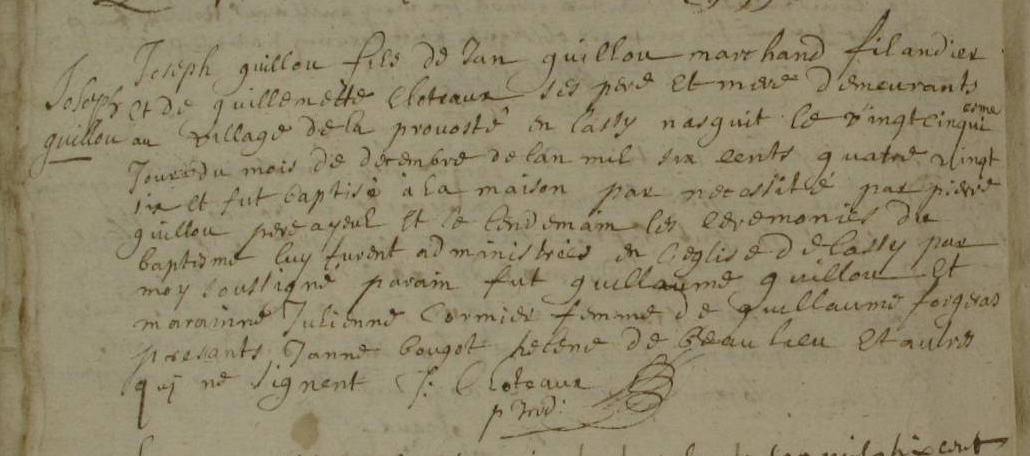 Joseph guillou fils de Jan guillou marchand filandier
Joseph
guillou
et de guillemette Cloteaux ses pere et mere demeurants
au village de la provosté en lassy nasquit le vingt cinqui esme
Jour du mois de decembre de lan mil six cents quatre vingt
six et fut baptisé à la maison par necessité par pierre
guillou pere ayeul et le lendemain les ceremonies du
baptisme luy furent administrées en leglise de lassy par
moy soussigné parain fut guillaume guillou et
marainne Julienne Cormier femme de guillaume forgeras
presants Janne bougot helene de beaulieu et autres
qui ne signent J: Cloteaux